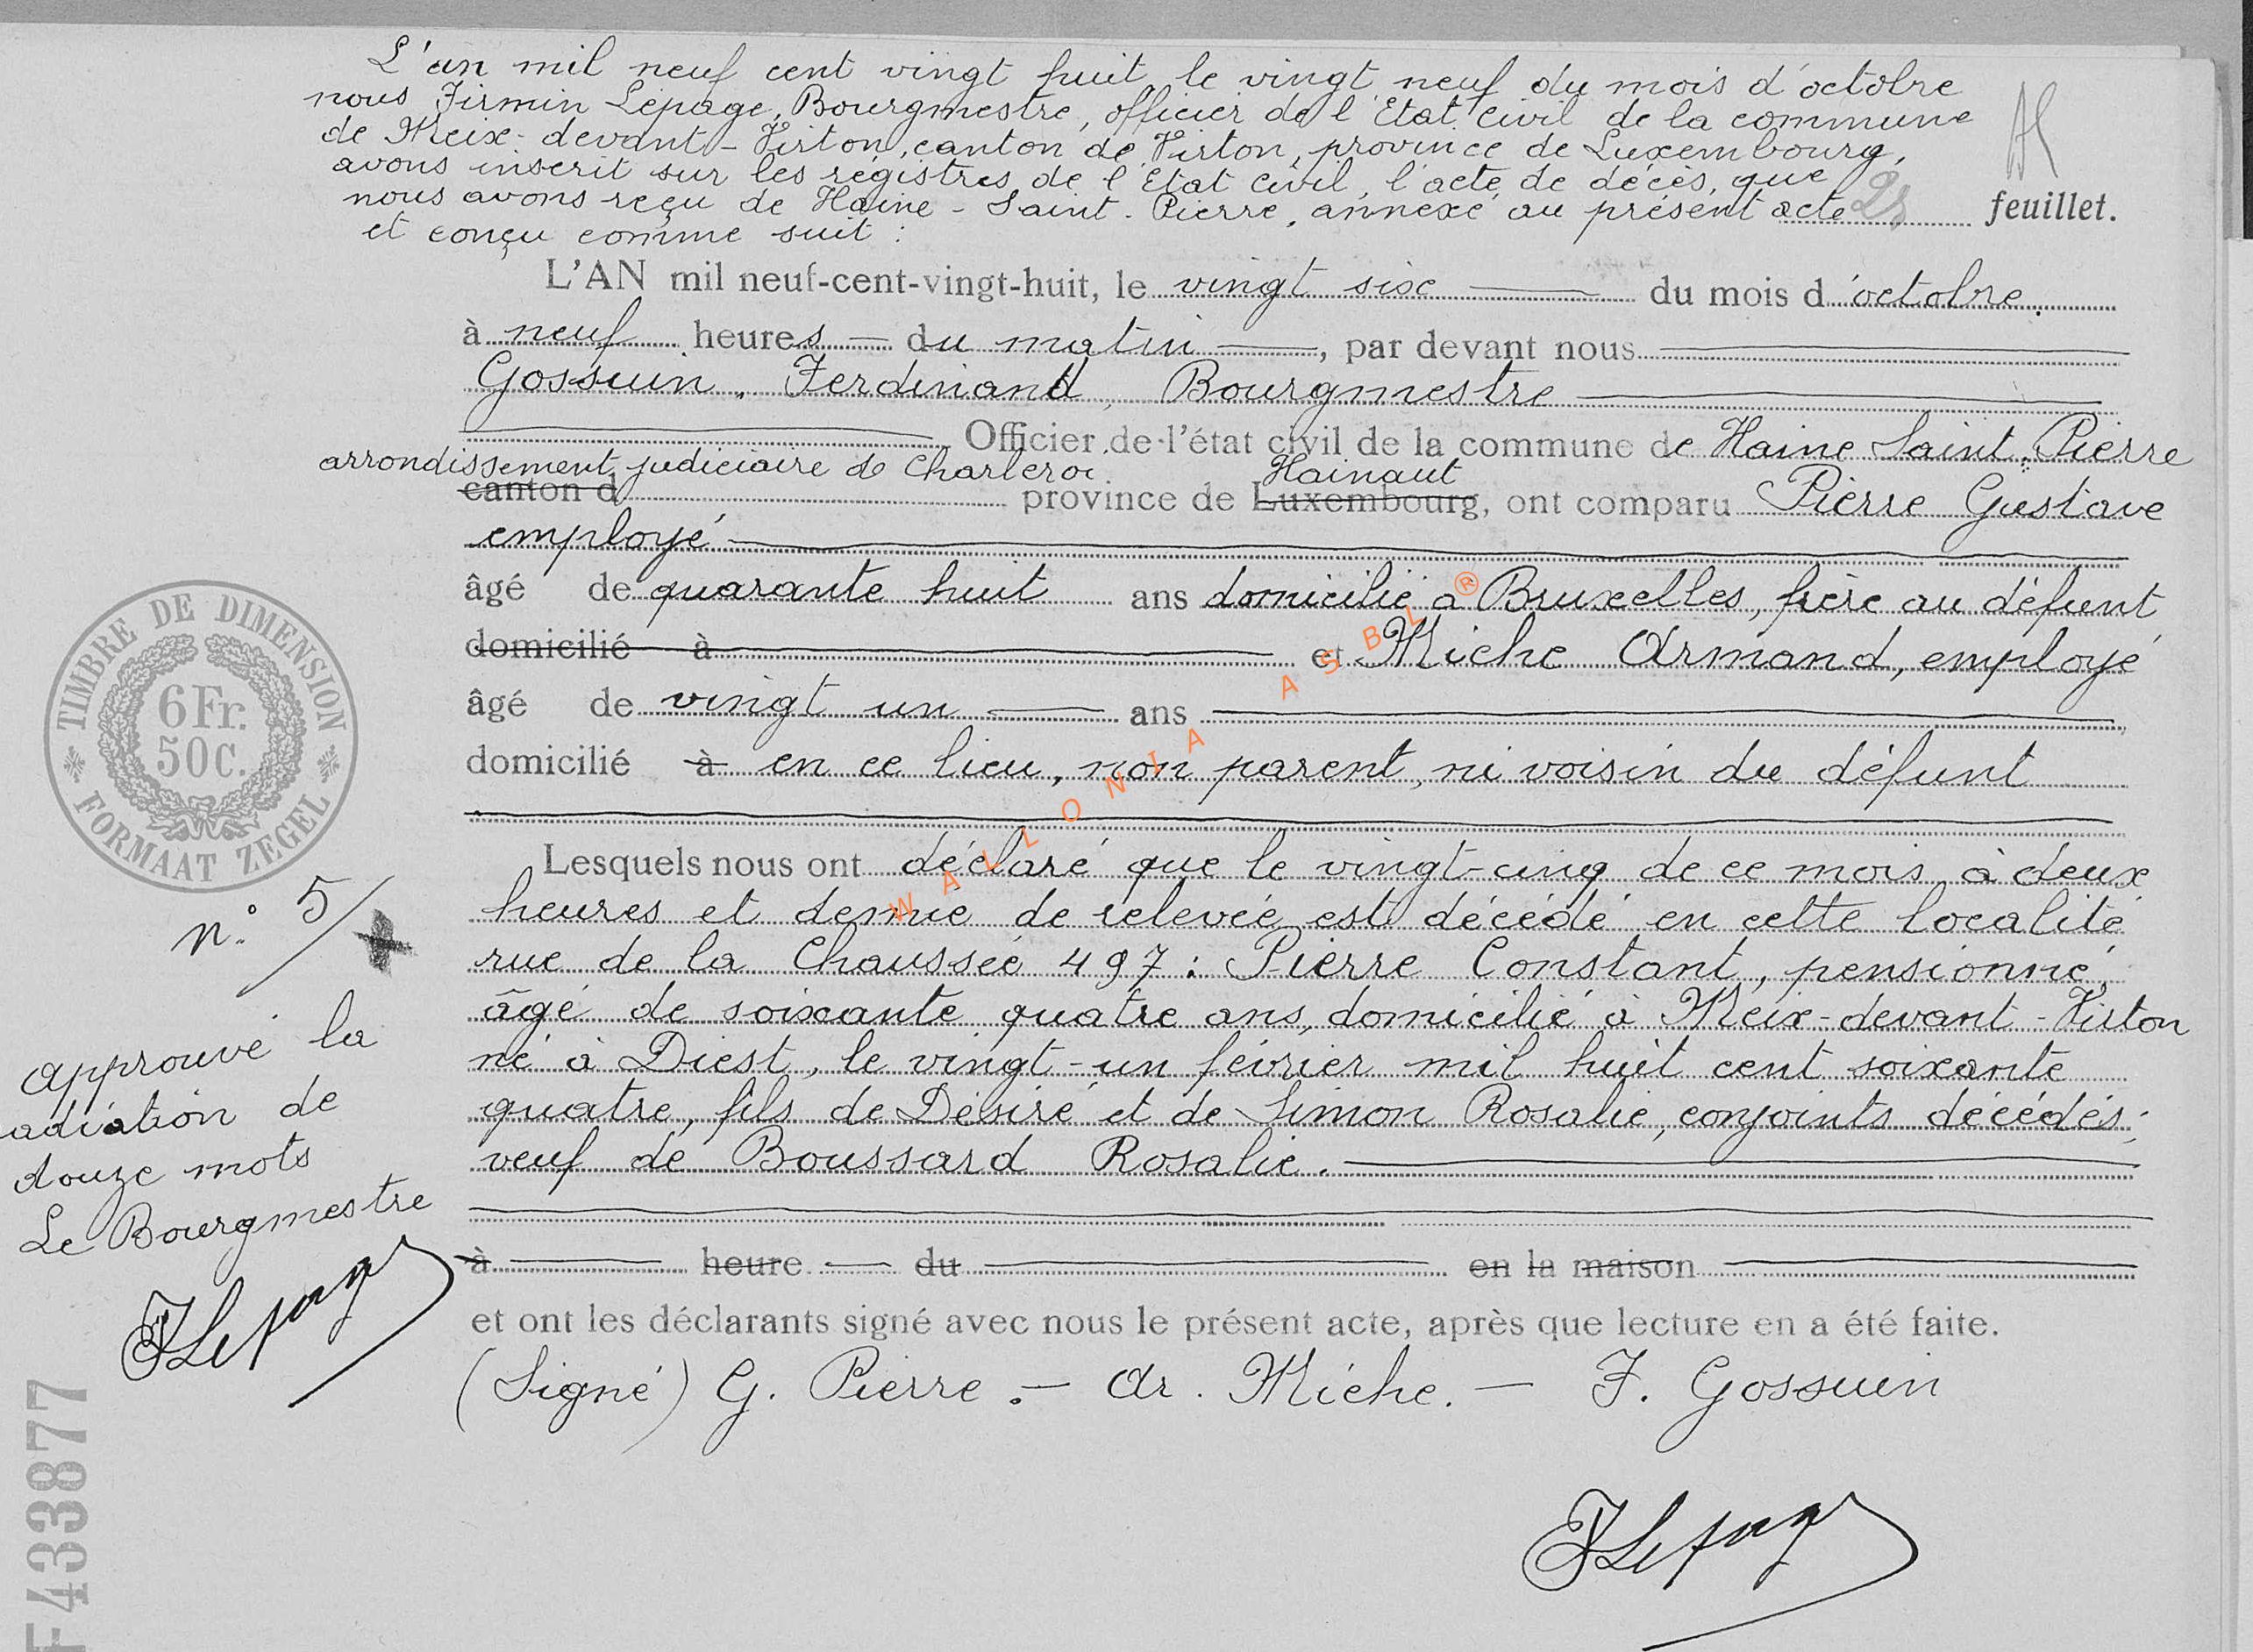 L'an mil neuf cent vingt huit, le vingt neuf du mois d'octobre
nous Firmin Lepage, Bourgmestre, officier de l'Etat Civil de la commune
de Meix-devant-Virton, canton de Virton, province de Luxembourg,
avons inscrit sur les régistres de l'Etat Civil, l'acte de décès, que
nous avons reçu de Haine-Saint-Pierre, annexé au présent acte
feuillet.
et conçu comme suit :
L'AN mil neuf-cent-vingt-huit, le vingt six du mois d'octobre
à neuf heures du matin, par devant nous
Gossuin, Ferdinand, Bourgmestre
Officier de l'état civil de la commune de Haine Saint-Pierre
arrondissement judiciaire de Charleroi Hainaut
canton d province de Luxembourg, ont comparu Pierre Gustave
employé
âgé de quarante huit ans domicilié à Bruxelles, frère au défunt
domicilié à et Miche Armand, employé
âgé de vingt un ans
domicilié à en ce lieu, non parent, ni voisin du défunt
Lesquels nous ont déclaré que le vingt-cinq de ce mois à deux
heures et demie de relevée est décédé en cette localité
rue de la Chaussée 497 : Pierre Constant, pensionné,
âgé de soixante quatre ans, domicilié à Meix-devant-Virton
né à Diest, le vingt-un février mil huit cent soixante
quatre, fils de Désiré et de Simon Rosalie, conjoints décédés ;
veuf de Boussard Rosalie.
à heure du en la maison
et ont les déclarants signé avec nous le présent acte, après que lecture en a été faite.
(Signé) G. Pierre. - Ar. Miche. - F. Gossuin
FLepage
TIMBRE DE DIMENSION
6 Fr.
50 C.
FORMAAT ZEGEL
n° 5/
approuvé la
radiation de
douze mots
Le Bourgmestre
FLepage
F433877
WALLONIA ASBL ®